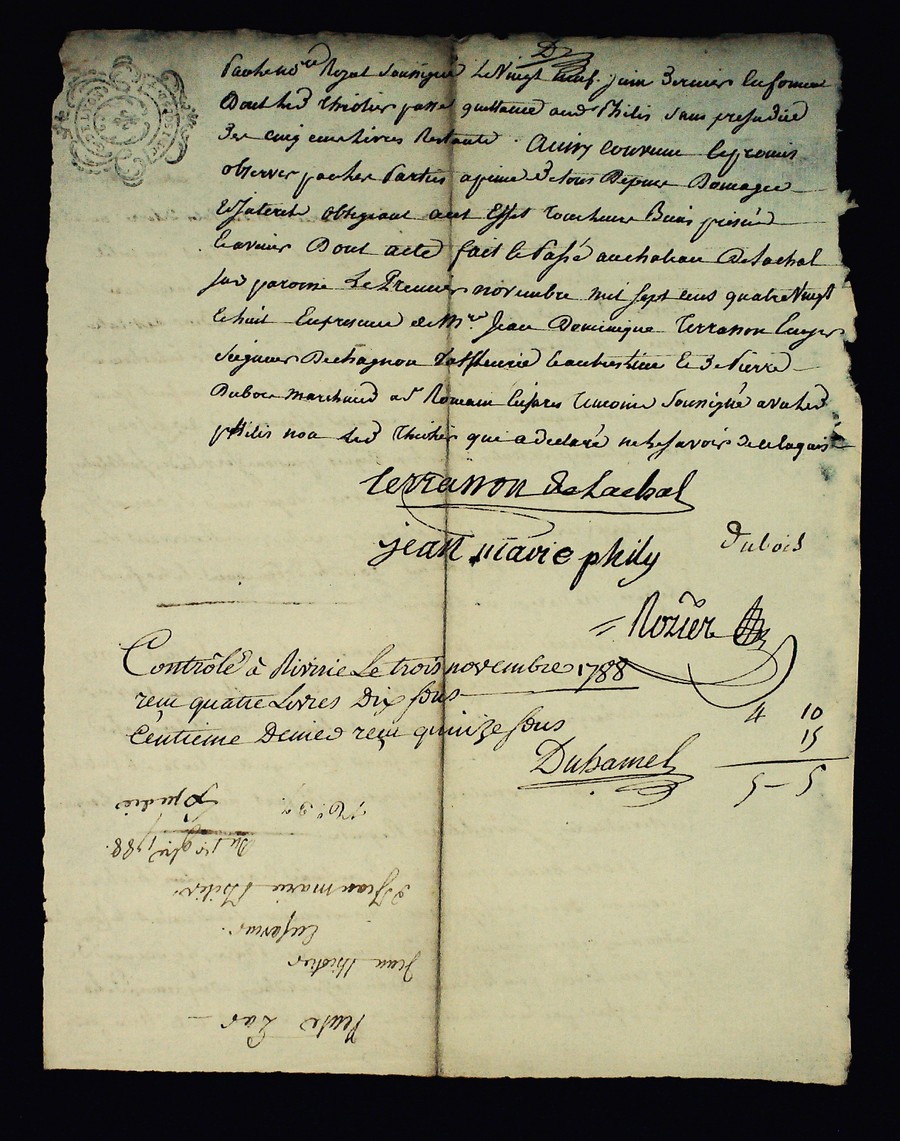 par le no.re Royal soussigné le vingt neuf juin dernier
Dont led. Thiolier passe quittance aud. Philis sans prejudice
des cinq cens livres Restante. Ainsy convenu et promis
observer par les Parties a peine de tous Depens Domages
Et Interets obligeant a cet Effet leurs Biens present
et avenir Dont acte fait et Passé au chateau De Lachal
sus paroisse Le Premier novembre mil sept cens quatre Vingt
et huit En presence de M.re Jean Dominique Terrasson Ecuyer
Seigneur De chagnon et de s.r Pierre
Dubois marchand a s.t Romain en jarez Temoins soussigné avec led.
philis non led. Thiolier qui a declaré ne le savoir de ce
terrasson de Lachal
jean marie phily dubois
Rozier
Contrôlé à Riverie Le trois novembre 1788
reçu quatre Livres Dix sous
Centieme Denier reçu quinze sous
Duhamel
4 10
15
5 - 5
Vente Par
Jean Thiolier
En faveur
de Jean marie Philis
Du 1er 9bre 1788.